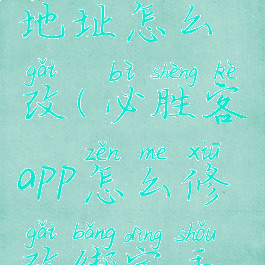 地址怎么
gǎi bì shèng kè
改(必胜客
zěn me xiū
app怎么修
gǎi bǎng dìng shǒu
改绑定手